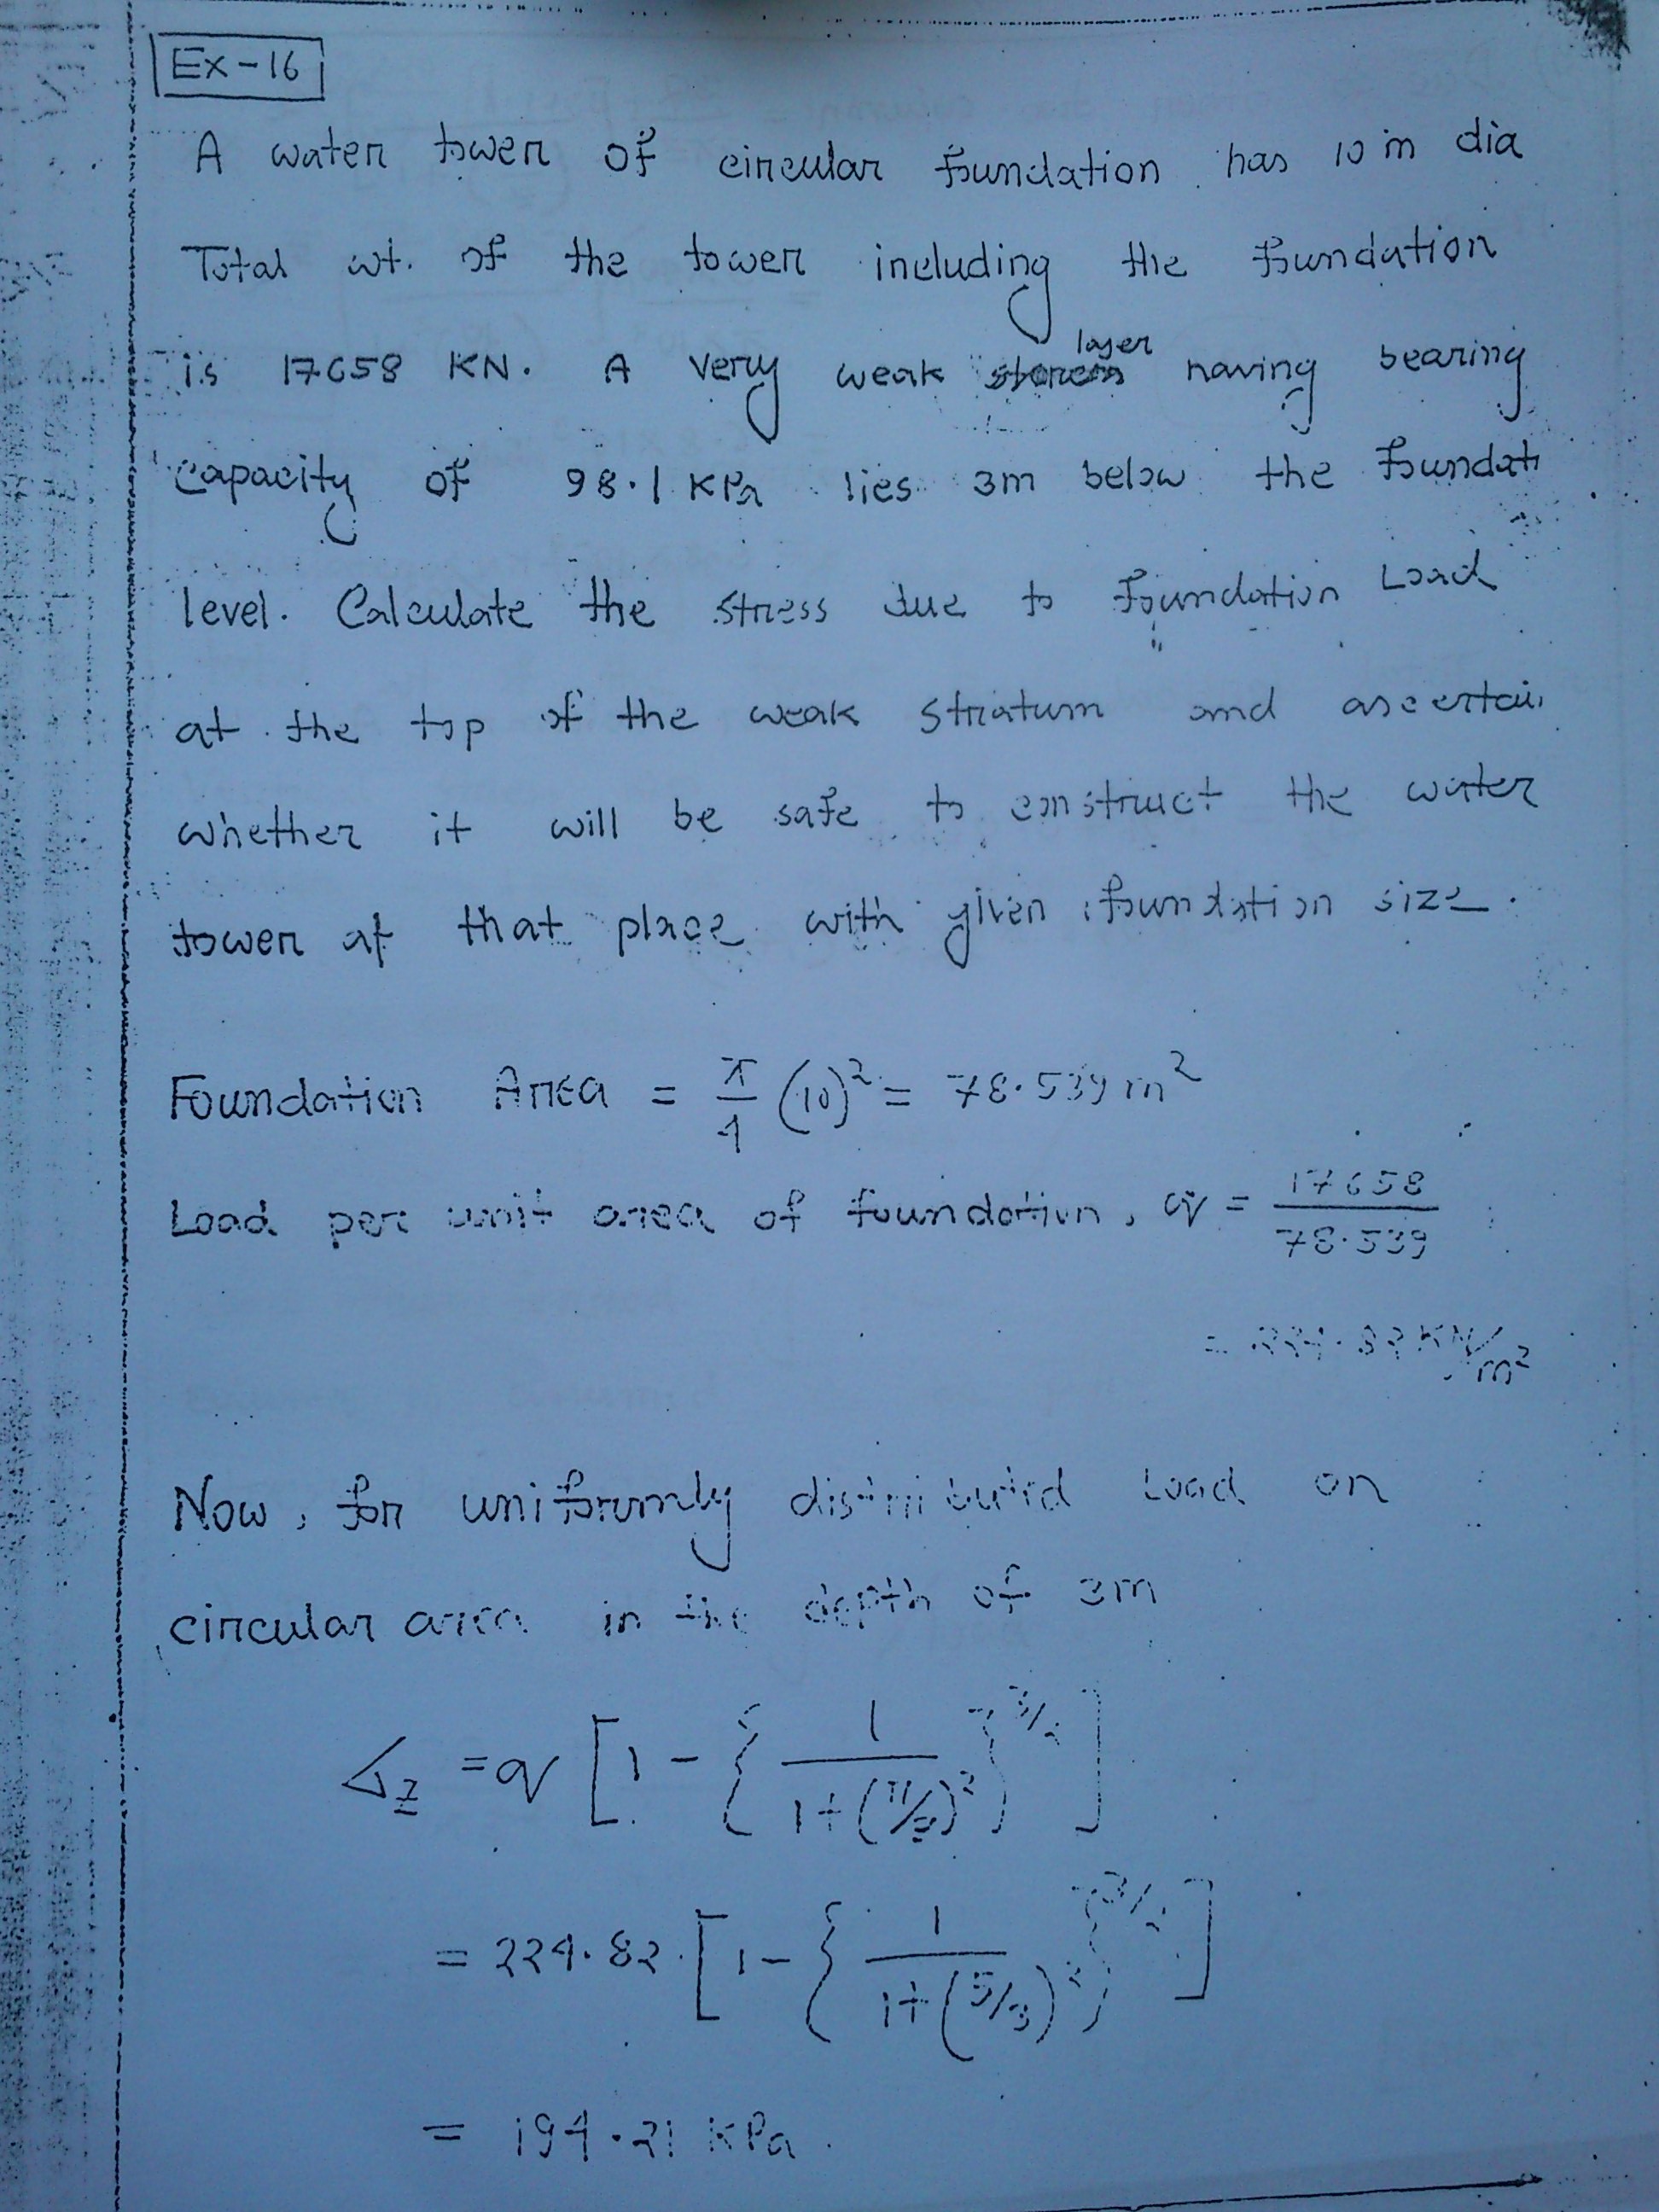 Ex-16
A water tower of circular foundation has 10 m dia
Total wt. of the tower including the foundation
is 17658 KN. A very weak layer having bearing
capacity of 98.1 KPa lies 3m below the foundati
level. Calculate the stress due to foundation Load
at the top of the weak stratum and ascertai
whether it will be safe to construct the water
tower at that place with given foundation size.
Foundation Area = π/4 (10)² = 78.539 m²
Load per unit area of foundation, q = 17658/78.539
= 224.82 KN/m²
Now, for uniformly distributed Load on
circular area in the depth of 3m
σz = q [1 - {1/(1+(r/z)²)}^3/2]
= 224.82 [1 - {1/(1+(5/3)²)}^3/2]
= 194.21 KPa.